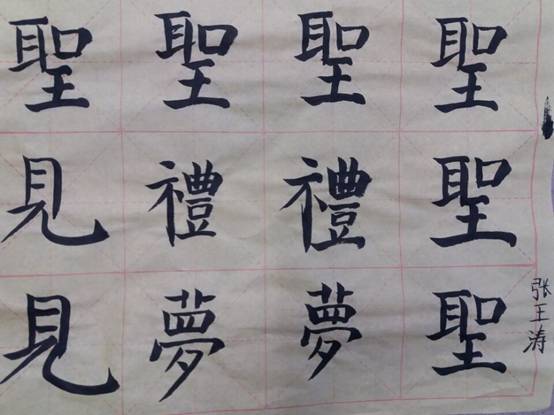 张王涛
聖聖聖
聖禮夢
聖禮夢
聖見見